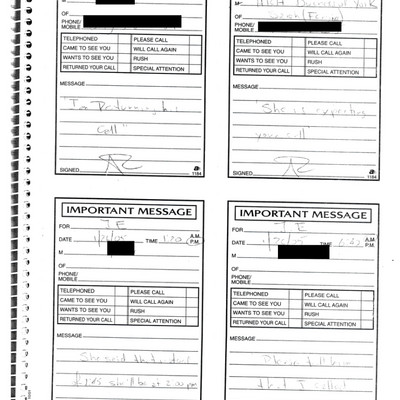 OF
PHONE/
MOBILE
TELEPHONED PLEASE CALL
CAME TO SEE YOU WILL CALL AGAIN
WANTS TO SEE YOU RUSH
RETURNED YOUR CALL SPECIAL ATTENTION
MESSAGE
call"
SIGNED 1184
M
OF
PHONE/
MOBILE
TELEPHONED PLEASE CALL
CAME TO SEE YOU WILL CALL AGAIN
WANTS TO SEE YOU RUSH
RETURNED YOUR CALL SPECIAL ATTENTION
MESSAGE
She is expecting
your call"
SIGNED 1184
IMPORTANT MESSAGE
FOR J E
DATE 1/26/05 TIME A.M.
P.M.
M
OF
PHONE/
MOBILE
TELEPHONED PLEASE CALL
CAME TO SEE YOU WILL CALL AGAIN
WANTS TO SEE YOU RUSH
RETURNED YOUR CALL SPECIAL ATTENTION
MESSAGE
She said that
she'll be at 2:00 pm
IMPORTANT MESSAGE
FOR J E
DATE 1/26/05 TIME A.M.
P.M.
M
OF
PHONE/
MOBILE
TELEPHONED PLEASE CALL
CAME TO SEE YOU WILL CALL AGAIN
WANTS TO SEE YOU RUSH
RETURNED YOUR CALL SPECIAL ATTENTION
MESSAGE
Please tell him
that I called